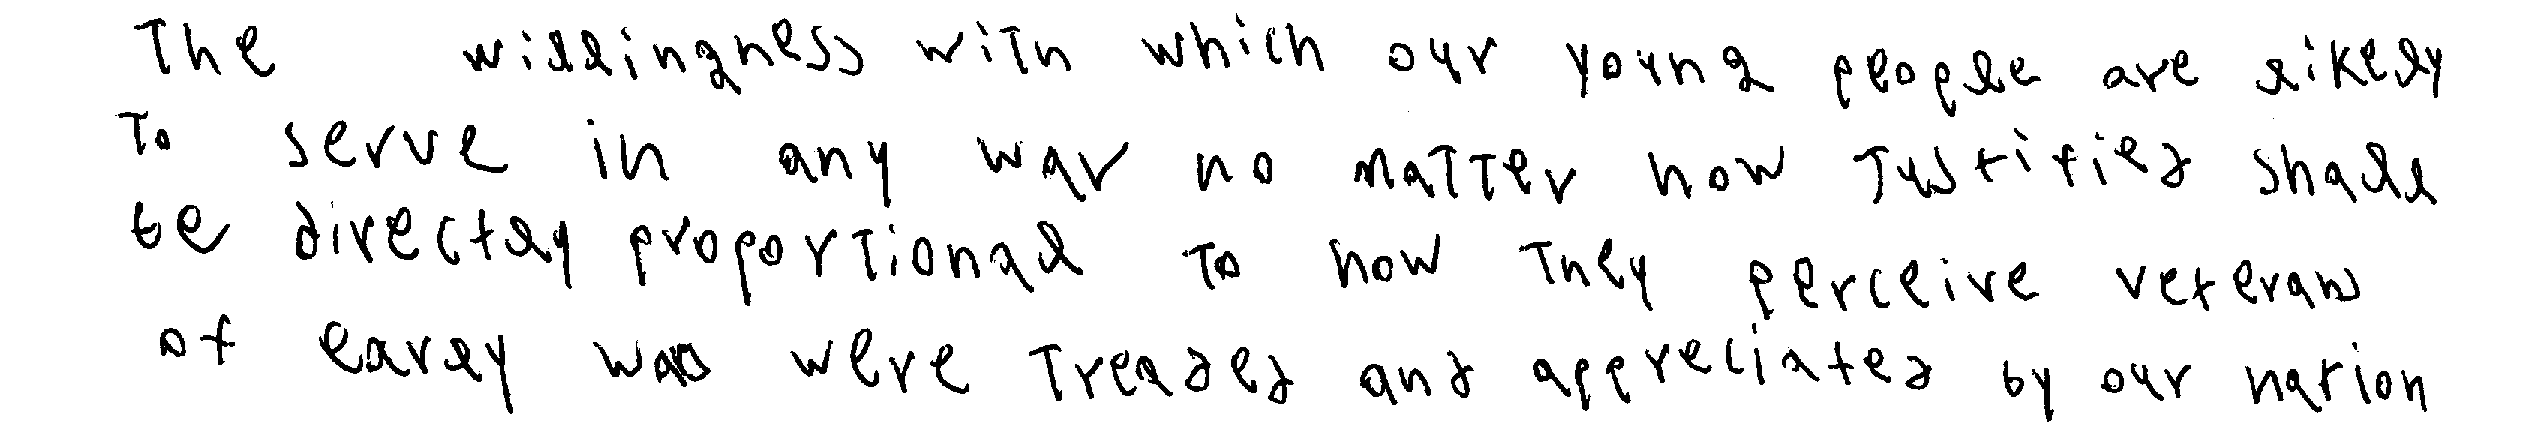 The willingness with which our young people are likely
To serve in any war no matter how Justified shall
be directly proportional To how They perceive veterans
of early was were Treaded and appreciated by our nation